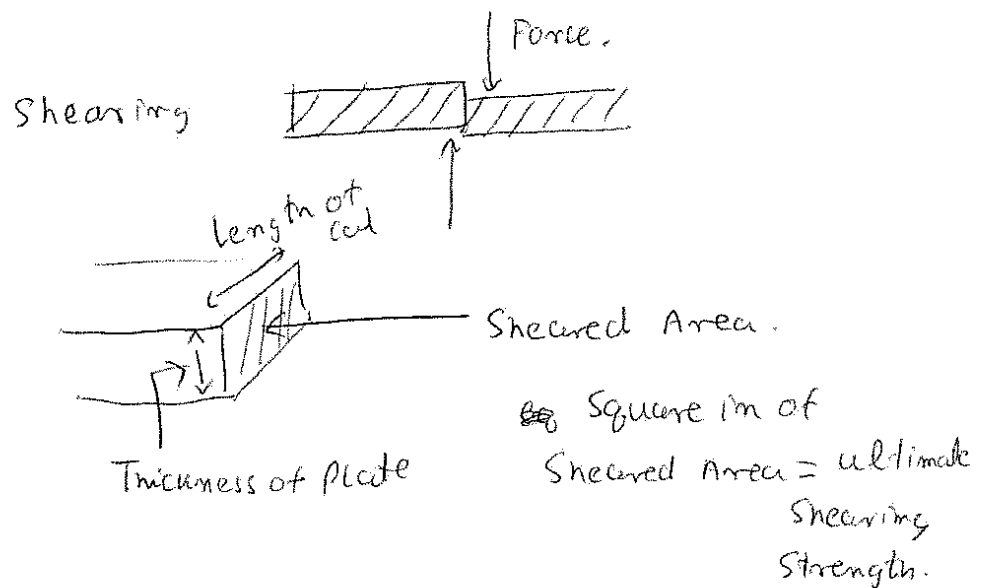 Force.
Shearing
Length of
cut
Sheared Area.
Thickness of Plate
Square in of
Sheared Area = ultimate
Shearing
Strength.